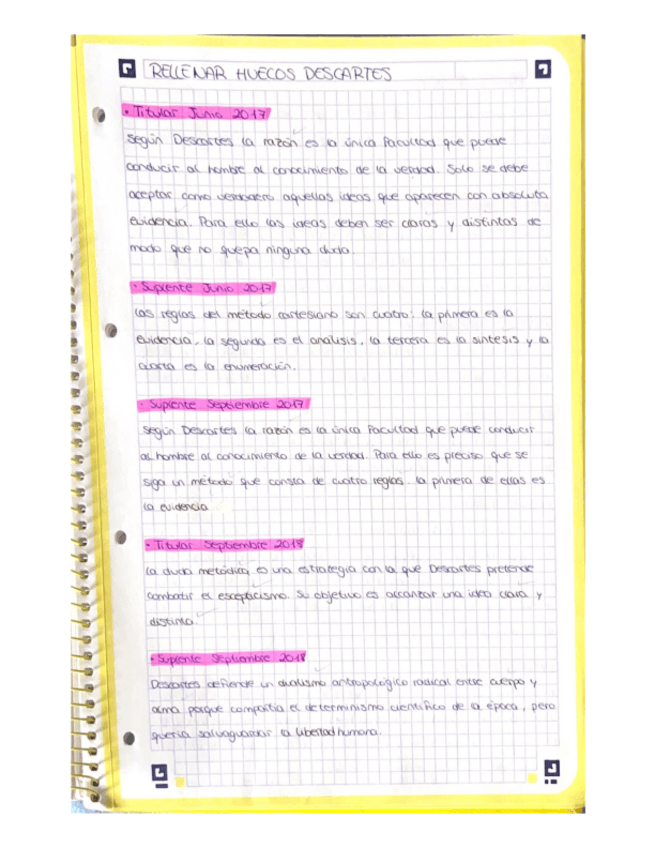 RELLENAR HUECOS DESCARTES
• Titular Junio 2017
Según Descartes la razón es la única facultad que puede
conducir al hombre al conocimiento de la verdad. Solo se debe
aceptar como verdadero aquellas ideas que aparecen con absoluta
evidencia. Para ello las ideas deben ser claras y distintas de
modo que no quepa ninguna duda.
• Suplente Junio 2017
Las reglas del método cartesiano son cuatro: la primera es la
evidencia, la segunda es el análisis, la tercera es la síntesis y la
cuarta es la enumeración.
• Suplente Septiembre 2017
Según Descartes la razón es la única facultad que puede conducir
al hombre al conocimiento de la verdad. Para ello es preciso que se
siga un método que consta de cuatro reglas. la primera de ellas es
la evidencia
• Titular Septiembre 2018
La duda metódica es una estrategia con la que Descartes pretende
combatir el escepticismo. Su objetivo es alcanzar una idea clara y
distinta.
• Suplente Septiembre 2018
Descartes defiende un dualismo antropológico radical entre cuerpo y
alma porque compartía el determinismo científico de la época, pero
quería salvaguardar la libertad humana.